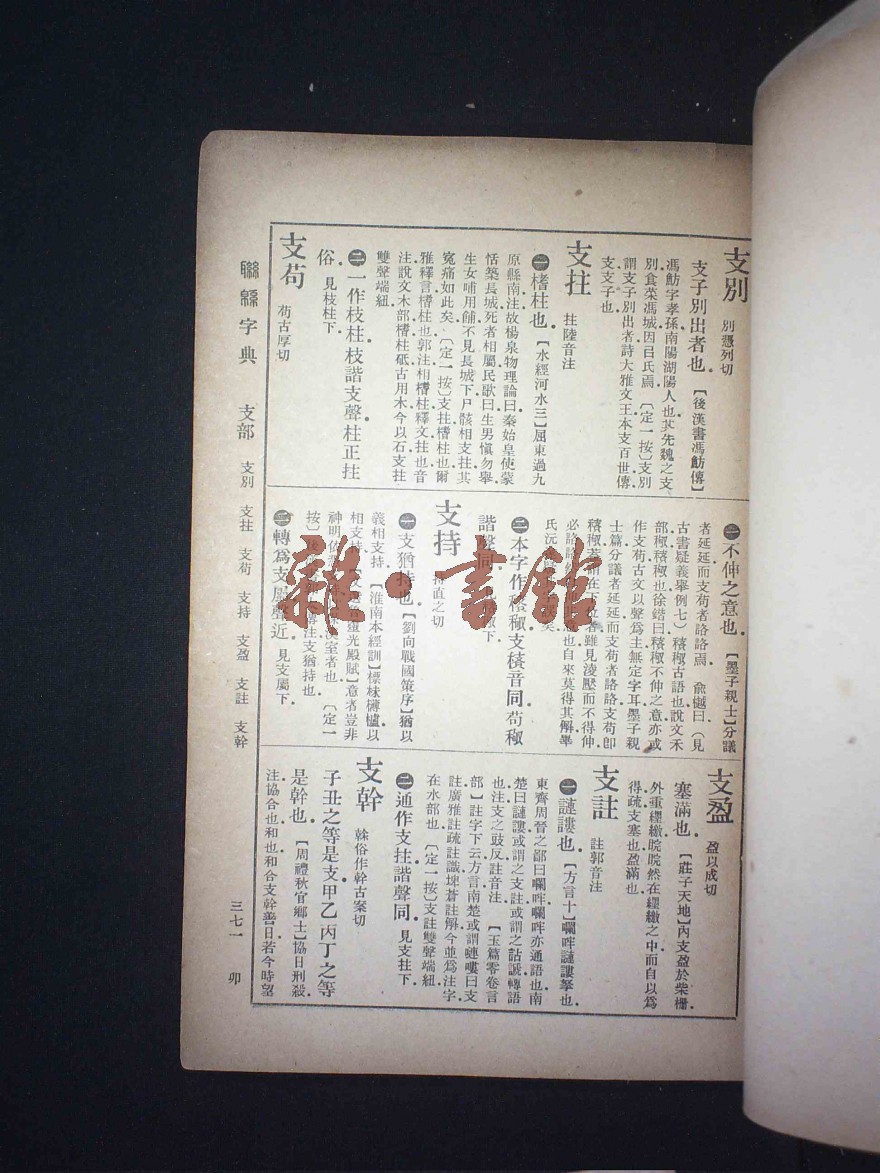 支別
別憑列切
支子別出者也．【後漢書馮魴傳】
馮魴字孝孫南陽湖陽人也．其先魏之支
別食菜馮城因㠯氏焉．〔定一按〕支別
謂支子別出者詩大雅文王本支百世傳
支支子也．
支拄
拄陸音注
㊀楮柱也．【水經河水三】屈東過九
原縣南注故楊泉物理論曰秦始皇使蒙
恬築長城死者相屬民歌曰生男慎勿舉
生女哺用餔不見長城下尸骸相支拄其
冤痛如此矣．〔定一按〕支拄榰柱也爾
雅釋言榰柱也郭注相榰柱釋文拄也音
注說文木部榰柱砥古用木今以石支拄
雙聲端紐．
㊁一作枝柱．枝諧支聲柱正拄
俗．見枝柱下．
支苟
苟古厚切
㊀不伸之意也．【墨子親士】分議
者延延而支苟者詻詻焉．俞樾曰（見
古書疑義舉例七）𥡴𥠻古語也說文禾
部𥡴𥠻也徐鍇曰𥡴𥠻不伸之意亦或
作支苟古文以聲爲主無定字耳墨子親
士篇分議者延延而支苟者詻詻支苟卽
𥡴𥠻
雖見淩壓而不得伸
也自來莫得其解畢
㊁本字作𥡴𥠻支𥡴音同．苟𥠻
諧聲同．
支持
持直之切
㊀支猶持也．【劉向戰國策序】猶以
義相支持．【淮南本經訓】標枺欂櫨以
相支持．靈光殿賦】意者豈非
神明依 室者也．〔定一
按〕後 傳注支猶持也．
㊁轉爲支屬聲近．見支屬下．
支盈
盈以成切
塞滿也．【莊子天地】內支盈於柴柵
外重纆繳睆睆然在纆繳之中而自以爲
得疏支塞也盈滿也．
支註
註郭音注
㊀謰謱也．【方言十】㘓哰謰謱拏也．
東齊周晉之鄙曰㘓哰㘓哰亦通語也南
楚曰謰謱或謂之支註或謂之詀謕轉語
也注支之豉反註音注．【玉篇零卷言
部】註字下云方言南楚或謂嗹嘍曰支
註廣雅註疏註識埤蒼註解今並爲注字
在水部也．〔定一按〕支註雙聲端紐．
㊁通作支拄諧聲同．見支拄下．
支幹
榦俗作幹古案切
子丑之等是支甲乙丙丁之等
是幹也．【周禮秋官鄉士】協日刑殺．
注協合也和也和合支幹善日若今時望
聯緜字典　支部　支別　支拄　支苟　支持　支盈　支註　支幹
三七一　卯
雜·書館